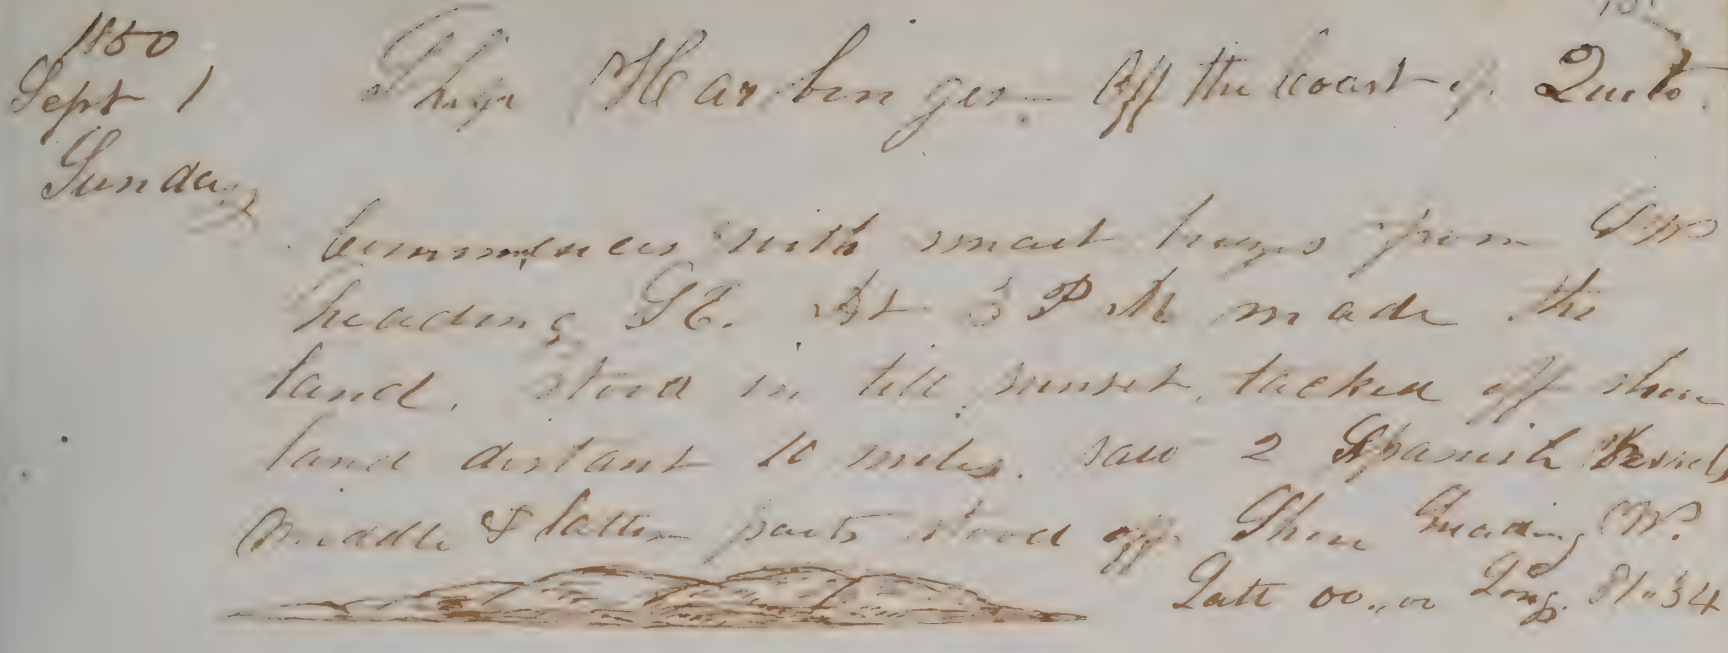 1850
Sept 1 Ship Harbinger Off the Coast of Quito
Sunday
Commences with smart breezes from SW
heading SE. At 3 PM made the
land. Stood in till sunset, tacked off shore
land distant 10 miles. saw 2 Spanish Vessels
Middle & latter parts stood off Shore heading W.
Latt 00,,00 Long. 81,,34